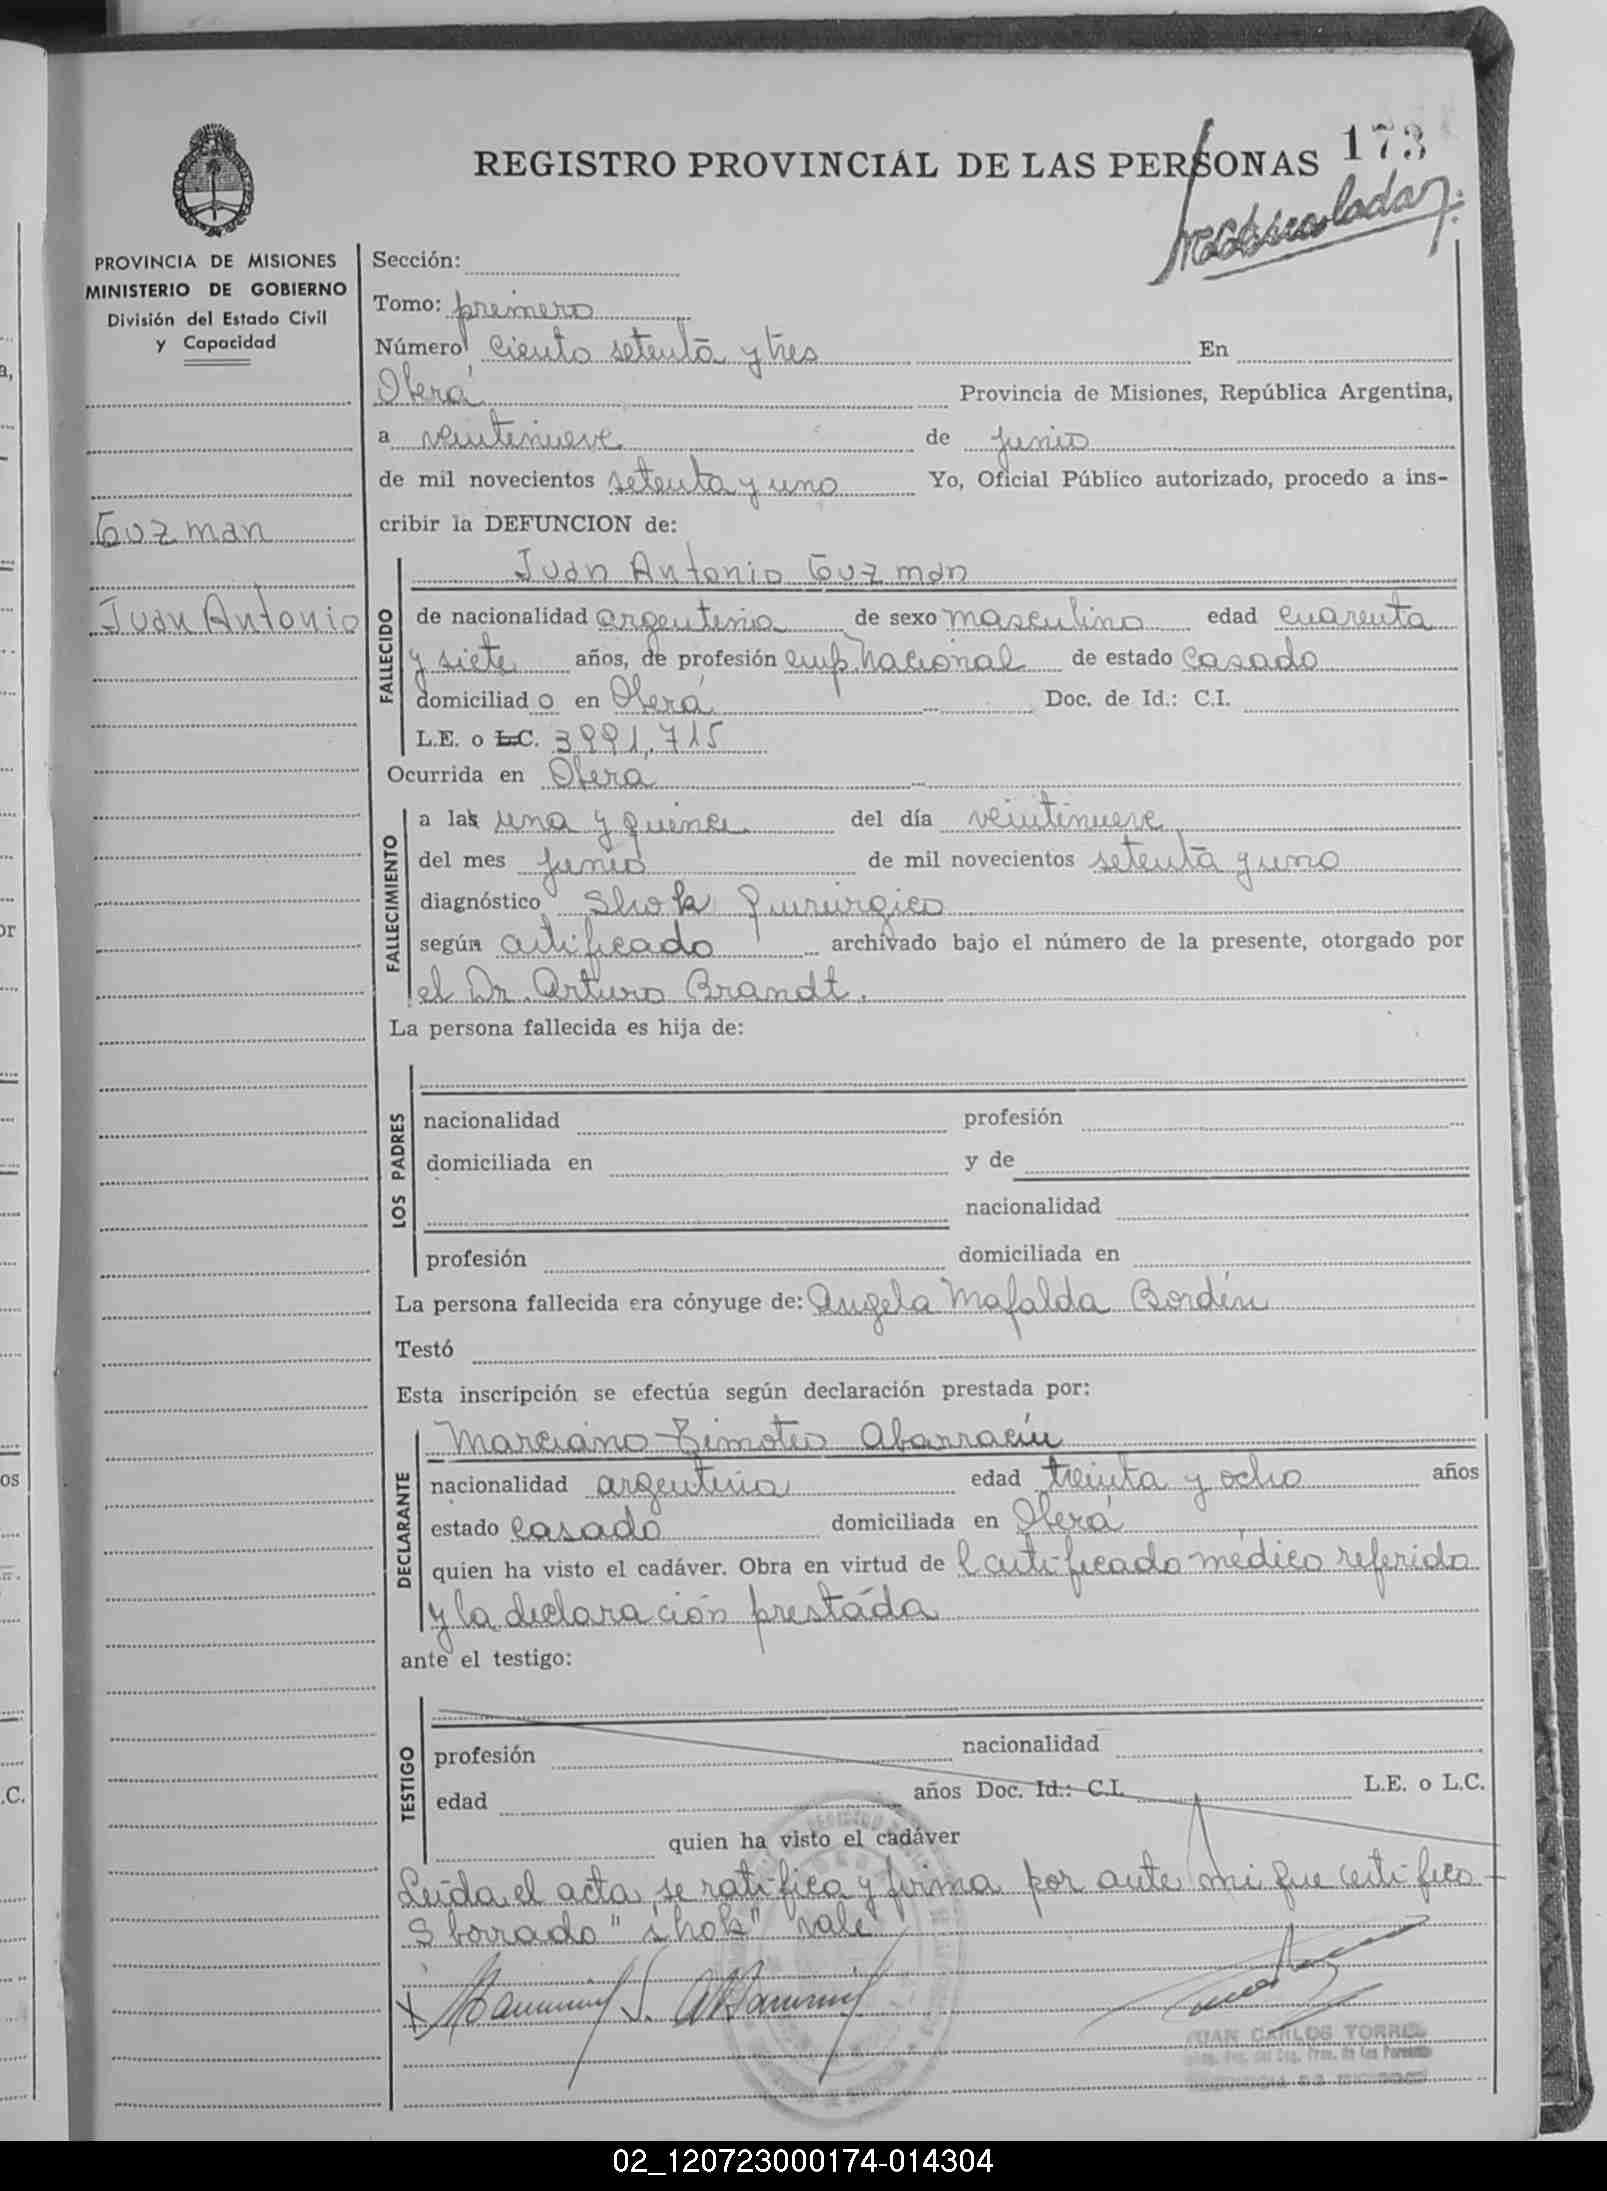 173
REGISTRO PROVINCIAL DE LAS PERSONAS
PROVINCIA DE MISIONES
MINISTERIO DE GOBIERNO
División del Estado Civil
y Capacidad
Guzman
Juan Antonio
Sección:
Tomo: primero
Número ciento setenta y tres En
Oberá Provincia de Misiones, República Argentina,
a veintinueve de junio
de mil novecientos setenta y uno Yo, Oficial Público autorizado, procedo a ins-
cribir la DEFUNCION de:
FALLECIDO
Juan Antonio Guzman
de nacionalidad argentina de sexo masculino edad cuarenta
y siete años, de profesión emp. Nacional de estado casado
domiciliado en Oberá Doc. de Id.: C.I.
L.E. o L.C. 3991.715
Ocurrida en Obera
FALLECIMIENTO
a las una y quince del día veintinueve
del mes junio de mil novecientos setenta y uno
diagnóstico Shok Quirurgico
según certificado archivado bajo el número de la presente, otorgado por
el Dr. Arturo Brandt.
La persona fallecida es hija de:
LOS PADRES
nacionalidad profesión
domiciliada en y de
nacionalidad
profesión domiciliada en
La persona fallecida era cónyuge de: Angela Mafalda Bordín
Testó
Esta inscripción se efectúa según declaración prestada por:
DECLARANTE
Marciano Timoteo Abarracín
nacionalidad argentina edad treinta y ocho años
estado casado domiciliada en Oberá
quien ha visto el cadáver. Obra en virtud de l certificado médico referido
y la declaración prestada
ante el testigo:
TESTIGO
profesión nacionalidad
edad años Doc. Id.: C.I. L.E. o L.C.
quien ha visto el cadáver
Leída el acta, se ratifica y firma por ante mi que certifico
S borrado "shok" vale
JUAN CARLOS TORRES
02_120723000174-014304